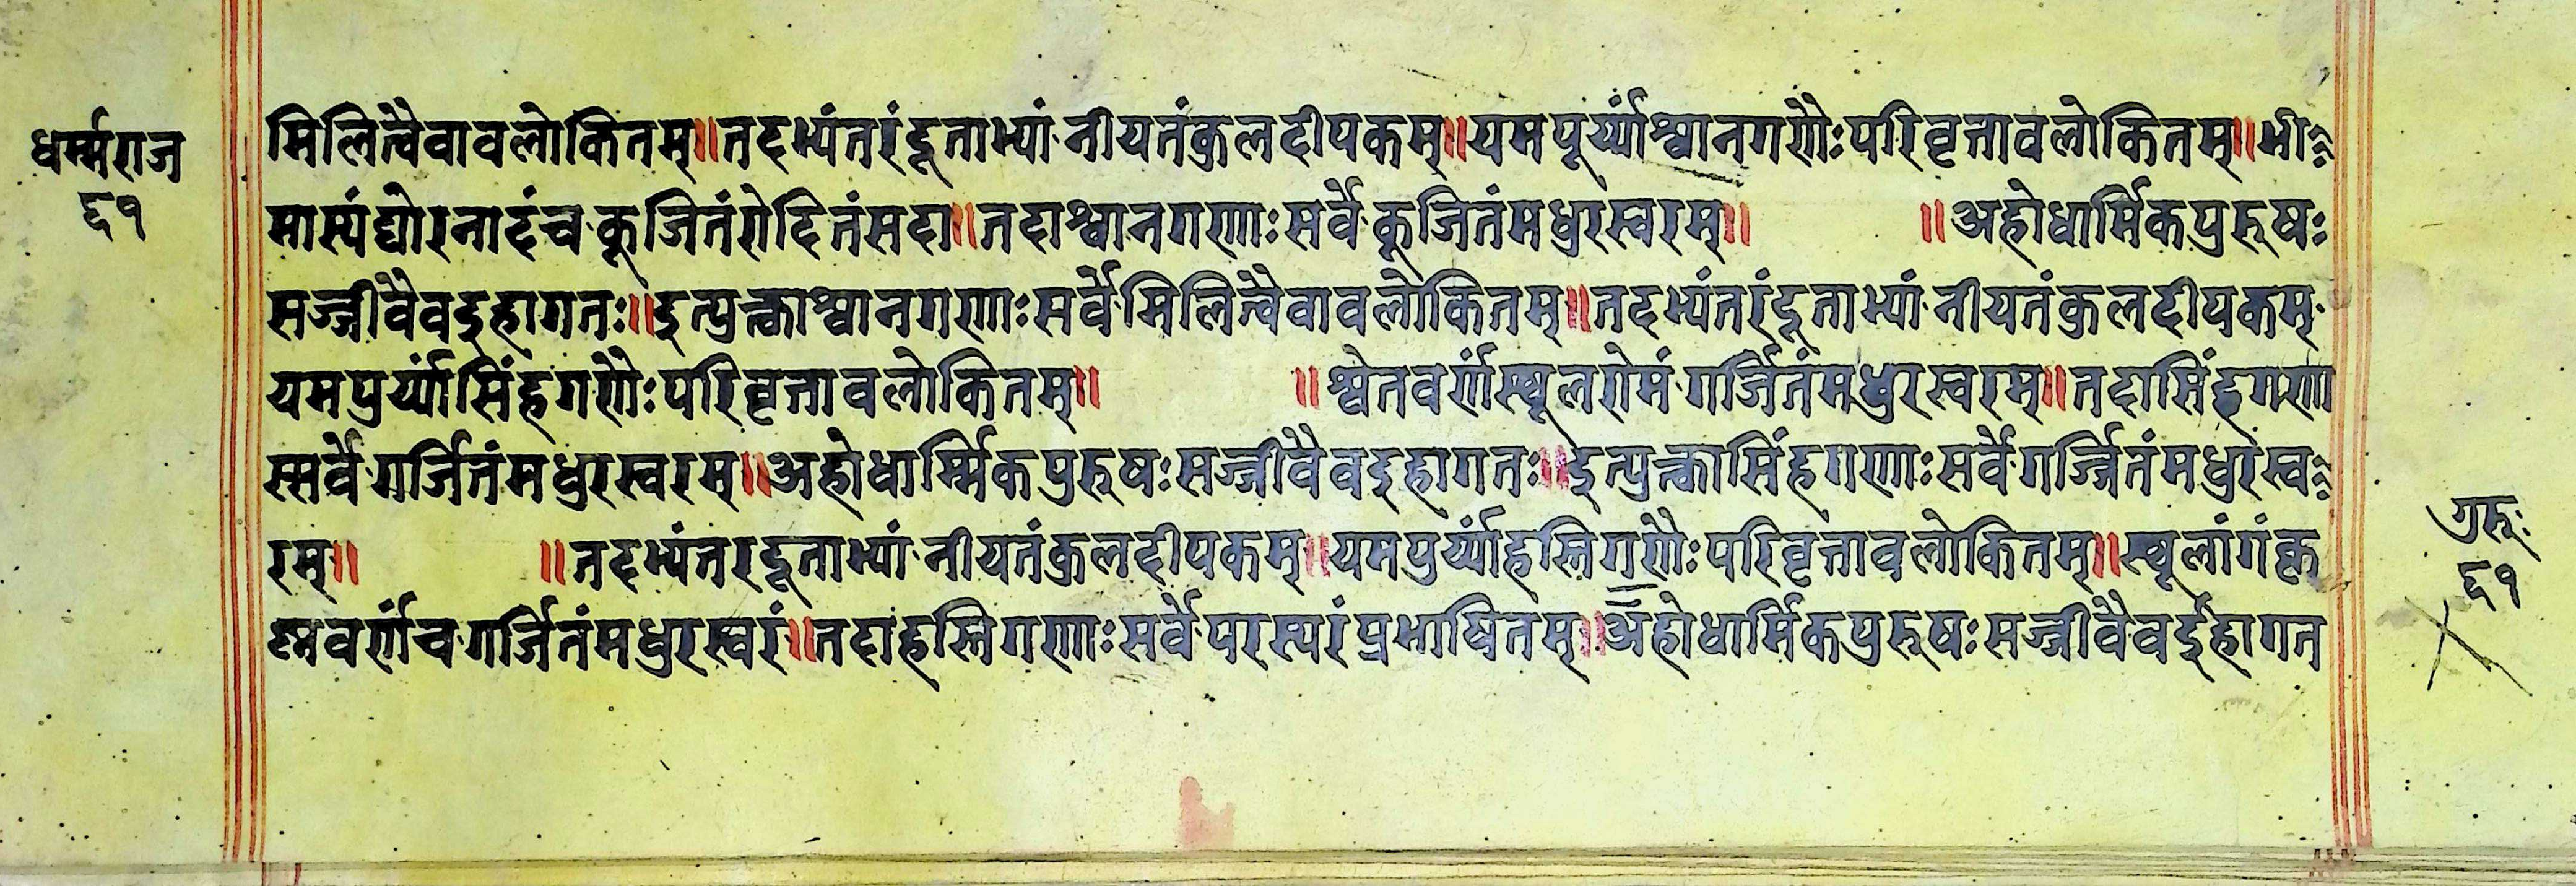 धर्म्मराज
६१
मिलित्वैवावलोकितम्॥तदभ्यंतरंदूताभ्यां नीयतंकुलदीपकम्॥यमपूर्य्यांश्वानगणैःपरिवृत्तावलोकितम्॥भी
मास्यंद्योरनादंच कूजितंरोदितंसदा॥तदाश्वानगणाःसर्वे कूजितंमधुरस्वरम्॥ ॥अहोधार्मिकपुरूषः
सज्जीवैवइहागतः॥इत्युक्त्वाश्वानगणाःसर्वे मिलित्वैवावलोकितम्॥तदभ्यंतरंदूताभ्यां नीयतंकुलदीपकम्
यमपुर्य्यांसिंहगणैःपरिवृत्तावलोकितम्॥ ॥श्वेतवर्णंस्थूलरोमं गर्जितंमधुरस्वरम्॥तदासिंहगणा
स्सर्वे गर्जितंमधुरस्वरम्॥अहोधार्म्मिकपुरूषःसज्जीवैवइहागतः॥इत्युक्त्वासिंहगणाःसर्वे गर्ज्जितंमधुरंस्व
रम्॥ ॥तदभ्यंतरदूताभ्यां नीयतंकुलदीपकम्॥यमपुर्य्यांहस्तिगणैःपरिवृत्तावलोकितम्॥स्थूलांगंकृ
ष्णवर्णंच गर्जितंमधुरस्वरं॥तदाहस्तिगणाःसर्वे परस्परंप्रभाषितम्॥अहोधार्मिकपुरूषःसज्जीवैवईहागत
गुरूः
६१